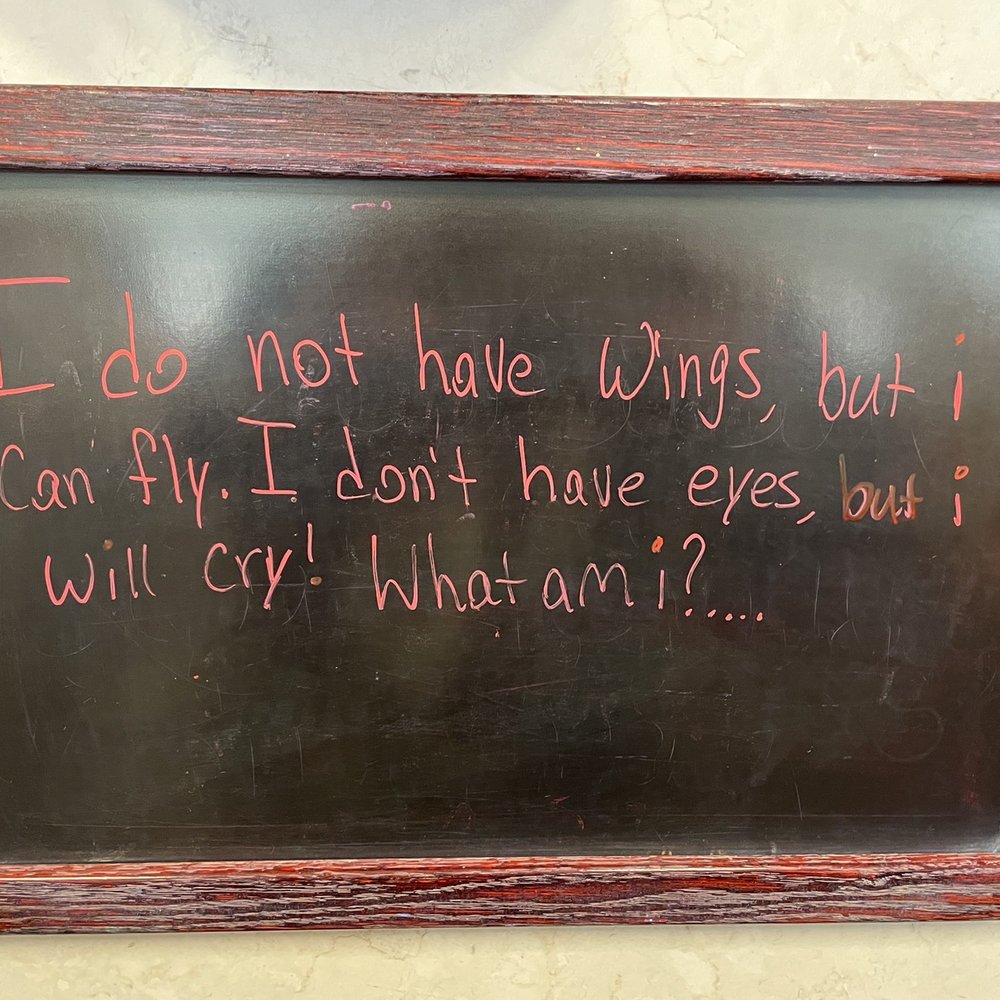 I do not have Wings, but i
Can fly. I don't have eyes, but i
will cry! What am i?.....